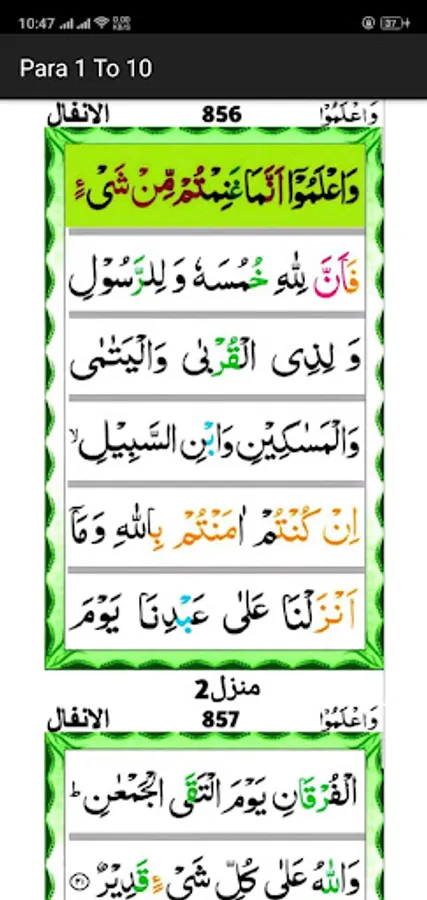 10:47 0.00 KB/S 37
Para 1 To 10
الانفال 856 وَاعْلَمُوْٓا
وَاعْلَمُوْٓا اَنَّمَا غَنِمْتُمْ مِّنْ شَیْءٍ
فَاَنَّ لِلّٰهِ خُمُسَهٗ وَ لِلرَّسُوْلِ
وَ لِذِی الْقُرْبٰی وَالْیَتٰمٰی
وَالْمَسٰکِیْنِ وَابْنِ السَّبِیْلِ ۙ
اِنْ کُنْتُمْ اٰمَنْتُمْ بِاللّٰهِ وَمَاۤ
اَنْزَلْنَا عَلٰی عَبْدِنَا یَوْمَ
منزل2
الانفال 857 وَاعْلَمُوْٓا
الْفُرْقَانِ یَوْمَ الْتَقَی الْجَمْعٰنِ ؕ
وَاللّٰهُ عَلٰی کُلِّ شَیْءٍ قَدِیْرٌ ﴿۴۱﴾